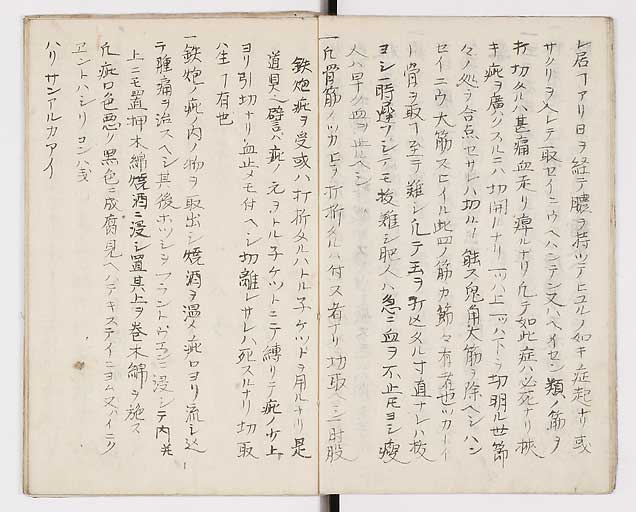 レ居ヿアリ日ヲ経テ膿ヲ持ツテヒユルノ如キ症起ナリ或
サクリヲ入レテ取セイニウヘハンテン又ハヘイセン類ノ筋ヲ
打切タルハ甚痛血走リ痺ルナリ凡テ如此症ハ必死ナリ挾
キ疵ヲ廣クスルニハ切開ルナリ
々ノ処ヲ合点セサレハ切ルノ 鬼角大筋ヲ除ヘシハン
セイニウ大筋スヒイル此四ノ筋カ節々有者也ツカーイ
ト骨ヲ取ヿ至テ難シ凡テ玉ヲ打込タル寸直ナレハ抜
ヨシ一時 モ抜難シ肥人ハ急ニ血ヲ不止ヨシ瘦
人ハ早ク血ヲ止ヘシ
一凡骨筋ノツカヒヲ打折タルハ付ス者ナリ切取ヘシ時股
鉄炮疵ヲ受或ハ打折タルハトル子ケツトヲ用ルナリ是
道具之譬ハ疵ノ元ヲトル子ケツトニテ縛リテ疵ノ少上
ヨリ引切ナリ血止メモ付ヘシ切離レサレハ死スルナリ切取
ハ生ヿ有也
一鉄炮ノ疵内ノ物ヲ取出シ焼酒ヲ温メ疵口ヨリ流シ込
テ腫痛ヲ治スヘシ其後ホツシヲフラントウエインニ浸シテ内
上ニモ置押木綿焼酒ニ浸シ置其上ヲ巻木綿ヲ施ス
凡疵口色悪ク黒色ニ成腐見ヘハテキステイニヨム又ハイニク
エントハシリヨンハ
ハリサンアルカアイ